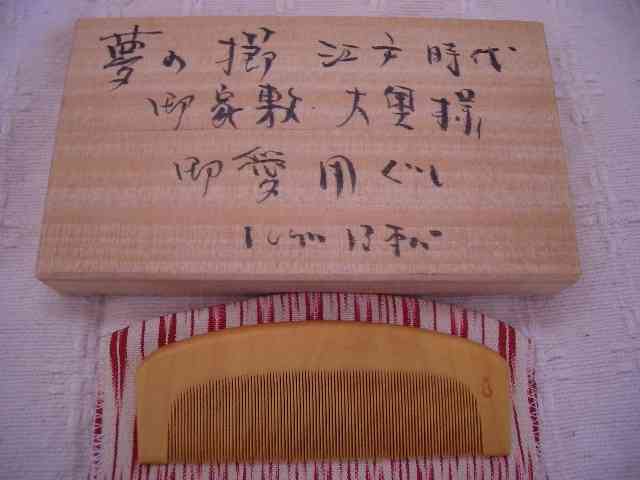 夢の櫛 江戸時代
御家敷 大奥様
御愛用ぐし